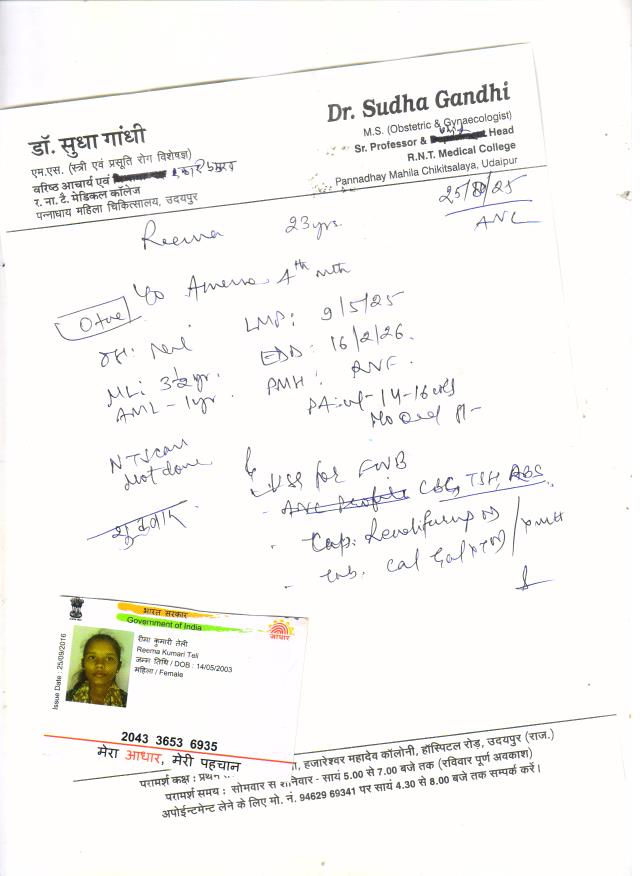 Dr. Sudha Gandhi
M.S. (Obstetric & Gynaecologist)
Sr. Professor & Unit Head
R.N.T. Medical College
Pannadhay Mahila Chikitsalaya, Udaipur
डॉ. सुधा गांधी
एम.एस. (स्त्री एवं प्रसूति रोग विशेषज्ञ)
वरिष्ठ आचार्य एवं
र. ना. टै. मेडिकल कॉलेज
पन्नाधाय महिला चिकित्सालय, उदयपुर
ANC
Reema 23 yrs.
4th mth
O+ve
LMP: 9/5/25
EDD: 16/2/26.
ML: 3½ yr.
PMH:
AML - 1yr.
PA: ut - 14-16 wks
NT Scan
Not done
USG for FWB
ANC Profile CBC, TSH, RBS
शुक्रवार
Cap.
Tab.
भारत सरकार
Government of India
आधार
Issue Date : 25/09/2016
रीमा कुमारी तेली
Reema Kumari Teli
जन्म तिथि / DOB : 14/05/2003
महिला / Female
2043 3653 6935
मेरा आधार, मेरी पहचान
हजारेश्वर महादेव कॉलोनी, हॉस्पिटल रोड़, उदयपुर (राज.)
परामर्श कक्ष : प्रथम
परामर्श समय : सोमवार से शनिवार - सायं 5.00 से 7.00 बजे तक (रविवार पूर्ण अवकाश)
अपोईन्टमेन्ट लेने के लिए मो. नं. 94629 69341 पर सायं 4.30 से 8.00 बजे तक सम्पर्क करें।